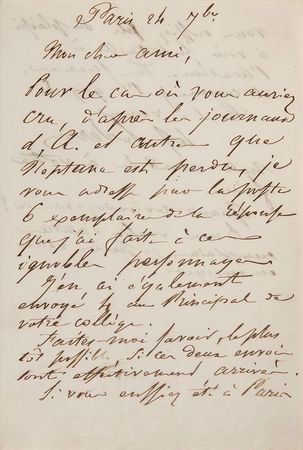 Paris 24 7bre
Mon cher ami,
Pour le cas où vous auriez
cru, d'après les journaux
d. A. et autre que
Neptune est perdu, je
vous adresse par la poste
6 exemplaires de la réponse
que j'ai faite à ces
ignobles personnages
J'en ai également
envoyé 4 au Principal de
votre collège.
Faites-moi savoir, le plus
tôt possible, si ces deux envois
sont effectivement arrivés.
Si vous eussiez été à Paris